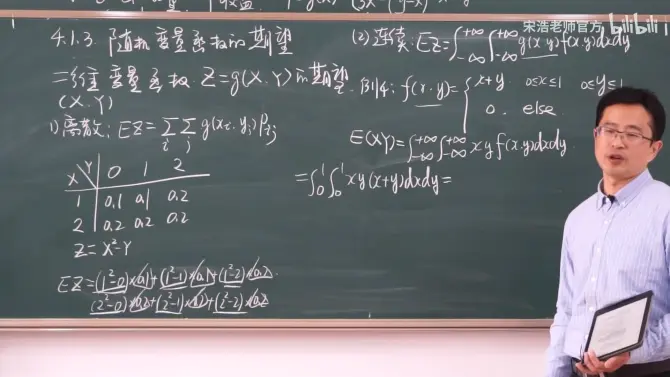 宋浩老师官方 bilibili
4.1.3 随机变量函数的期望
二维变量函数 Z=g(X,Y)的期望
(X,Y)
1)离散: EZ=∑∑g(xᵢ,yⱼ)Pᵢⱼ
i j
X Y 0 1 2
1 0.1 0.1 0.2
2 0.2 0.2 0.2
Z=X²-Y
EZ=(1²-0)×0.1+(1²-1)×0.1+(1²-2)×0.2
(2²-0)×0.2+(2²-1)×0.2+(2²-2)×0.2
(2)连续: EZ=∫_{-∞}^{+∞}∫_{-∞}^{+∞}g(x,y)f(x,y)dxdy
例4: f(x,y)={x+y 0≤x≤1 0≤y≤1
0. else.
E(XY)=∫_{-∞}^{+∞}∫_{-∞}^{+∞}xyf(x,y)dxdy
=∫₀¹∫₀¹xy(x+y)dxdy=